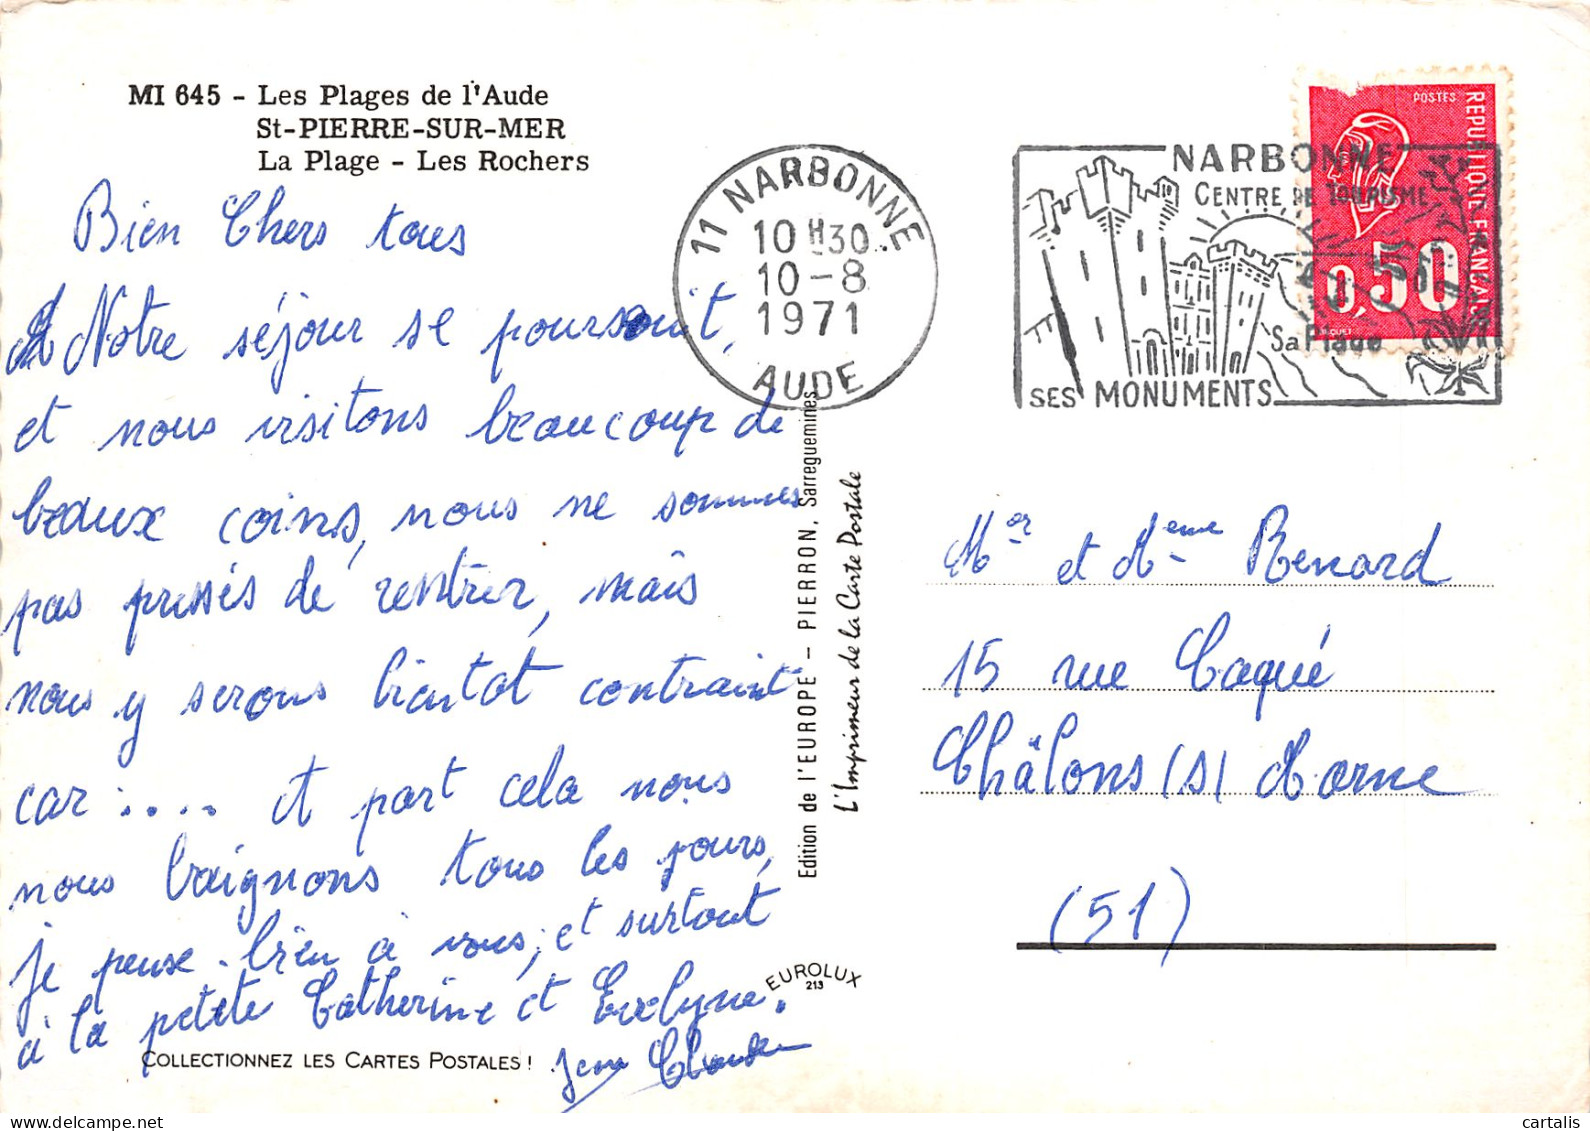 MI 645 - Les Plages de l'Aude
St-PIERRE-SUR-MER
La Plage - Les Rochers
Bien Chers tous
Notre séjour se poursuit,
et nous visitons beaucoup de
beaux coins, nous ne sommes
pas pressés de rentrer, mais
nous y serons bientot contraint
car : .... et part cela nous
nous baignons tous les jours,
je pense bien à vous, et surtout
à la petite Catherine et Evelyne.
Jean Claude
COLLECTIONNEZ LES CARTES POSTALES !
Edition de l'EUROPE - PIERRON, Sarreguemines
L'Imprimeur de la Carte Postale
EUROLUX
213
11 NARBONNE
10 H30
10-8
1971
AUDE
NARBONNE
CENTRE DE TOURISME
Sa Plage
SES MONUMENTS
POSTES
REPUBLIQUE FRANÇAISE
0,50
Mr et Mme Renard
15 rue Caqué
Châlons (s) Marne
(51)
cartalis
www.delcampe.net